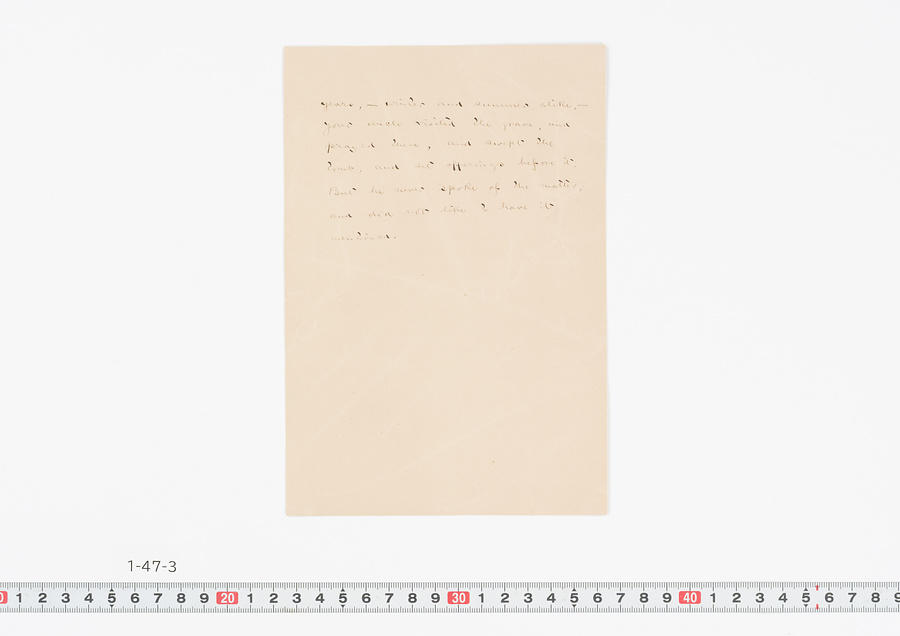 years, — winter and summer alike, —
your uncle visited the grave, and
prayed there, and swept the
tomb, and set offerings before it.
But he never spoke of the matter;
and did not like to have it
mentioned.
1-47-3
0 1 2 3 4 5 6 7 8 9 20 1 2 3 4 5 6 7 8 9 30 1 2 3 4 5 6 7 8 9 40 1 2 3 4 5 6 7 8 9